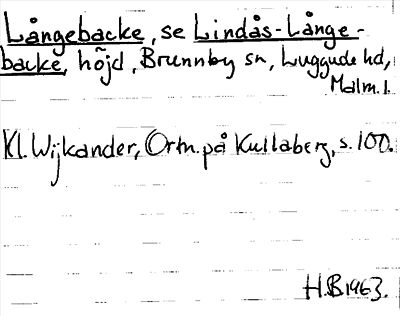 Långebacke, se Lindås-Långe-
backe, höjd, Brunnby sn, Luggude hd,
Malm. l.
Kl. Wijkander, Ortn. på Kullaberg, s. 100.
H.B 1963.